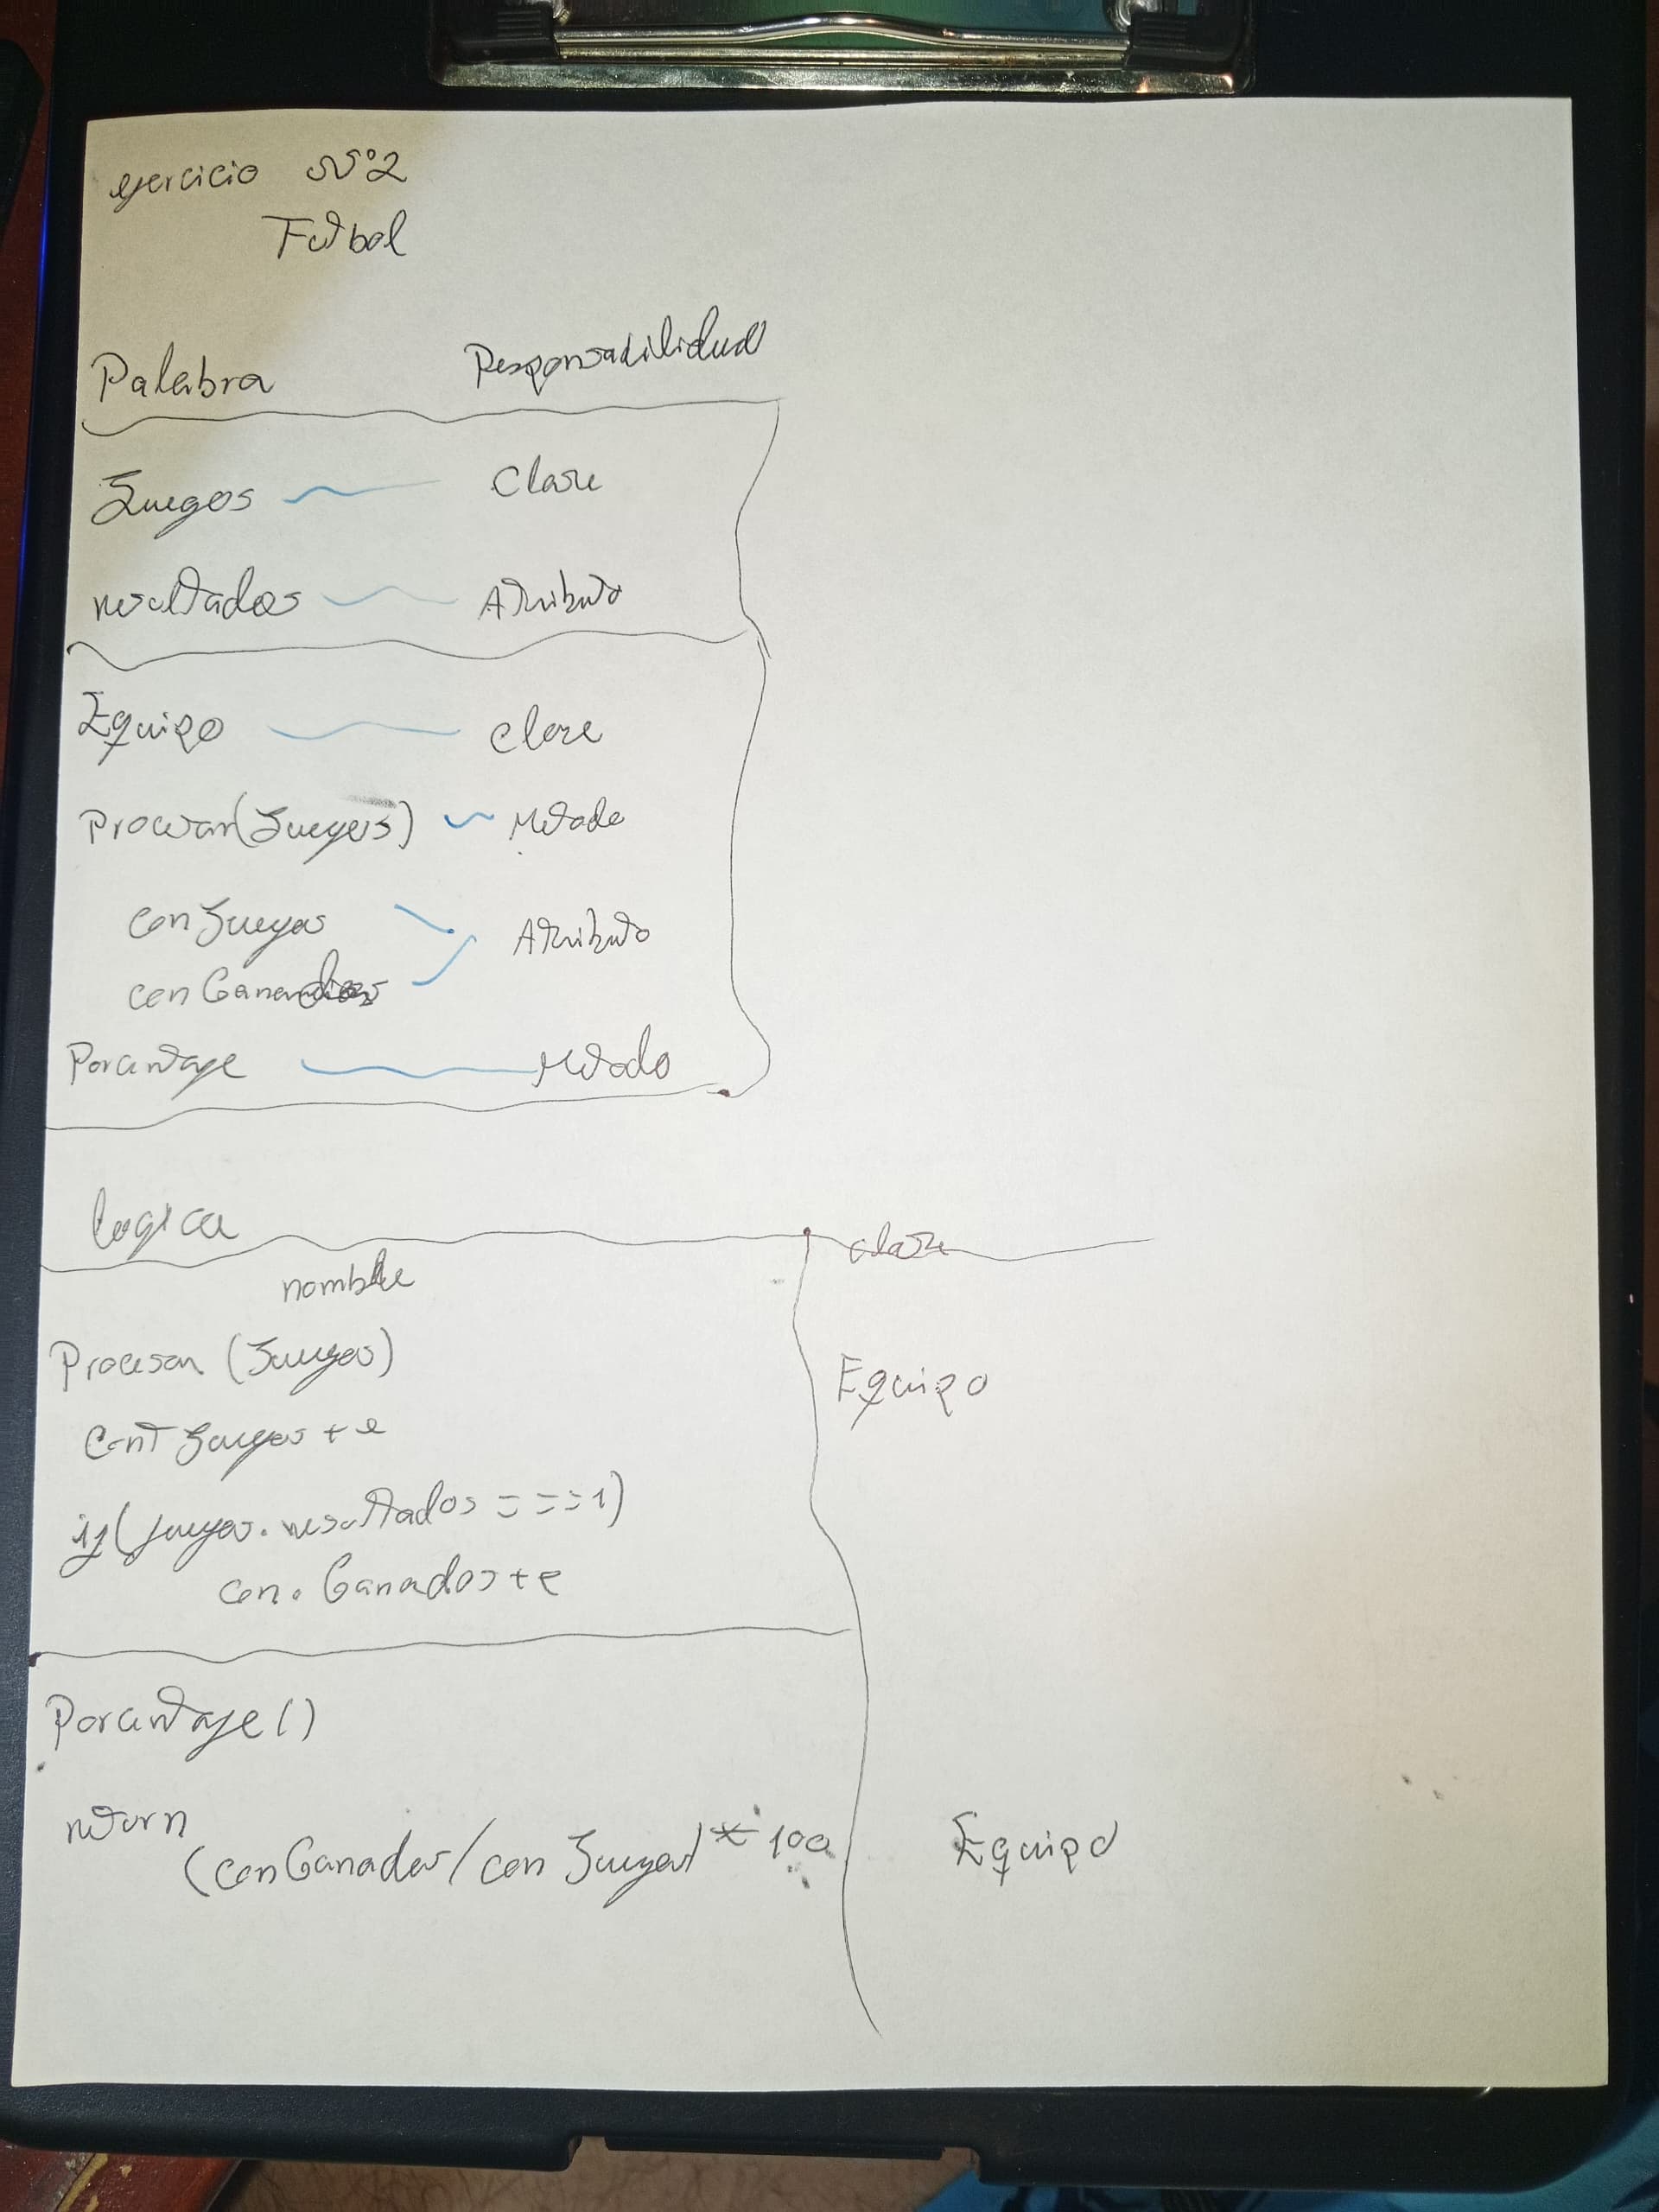 ejercicio Nº2
Futbol
Palabra Responsabilidad
Juegos Clase
resultados Atributo
Equipo clase
Procesar(Juegos) Metodo
con Juegos
Atributo
con Ganados
Porcentaje Metodo
logica clase
nombre
Procesar (Juegos) Equipo
Cont Juegos + e
if(juegos.resultados === 1)
con. Ganados + e
Porcentaje()
return
(con Ganados / con Juegos) * 100 Equipo